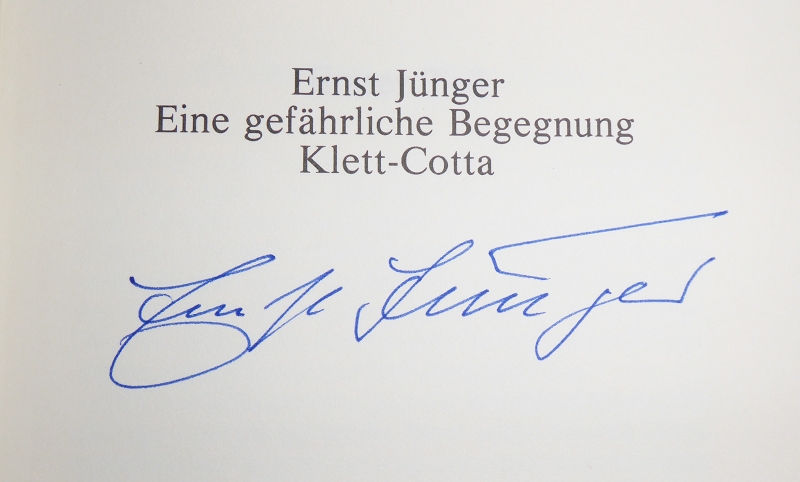 Ernst Jünger
Eine gefährliche Begegnung
Klett-Cotta
Ernst Jünger